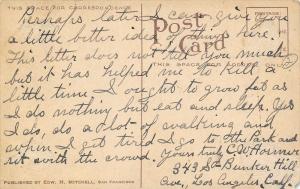 THIS SPACE FOR CORRESPONDENCE
Perhaps later I can give you
a little better idea of things here.
Post Card
This letter does not tell you much
THIS SPACE FOR ADDRESS ONLY
but it has helped me to kill a
little time. I ought to grow fat as
I do nothing but eat and sleep. Yes
I do, do a lot of walking and
when I get tired I go to the Park and
sit with the crowd. Yours truly C.W.
343 So. Bunker Hill
Ave., Los Angeles, Calif.
PUBLISHED BY EDW. H. MITCHELL, SAN FRANCISCO